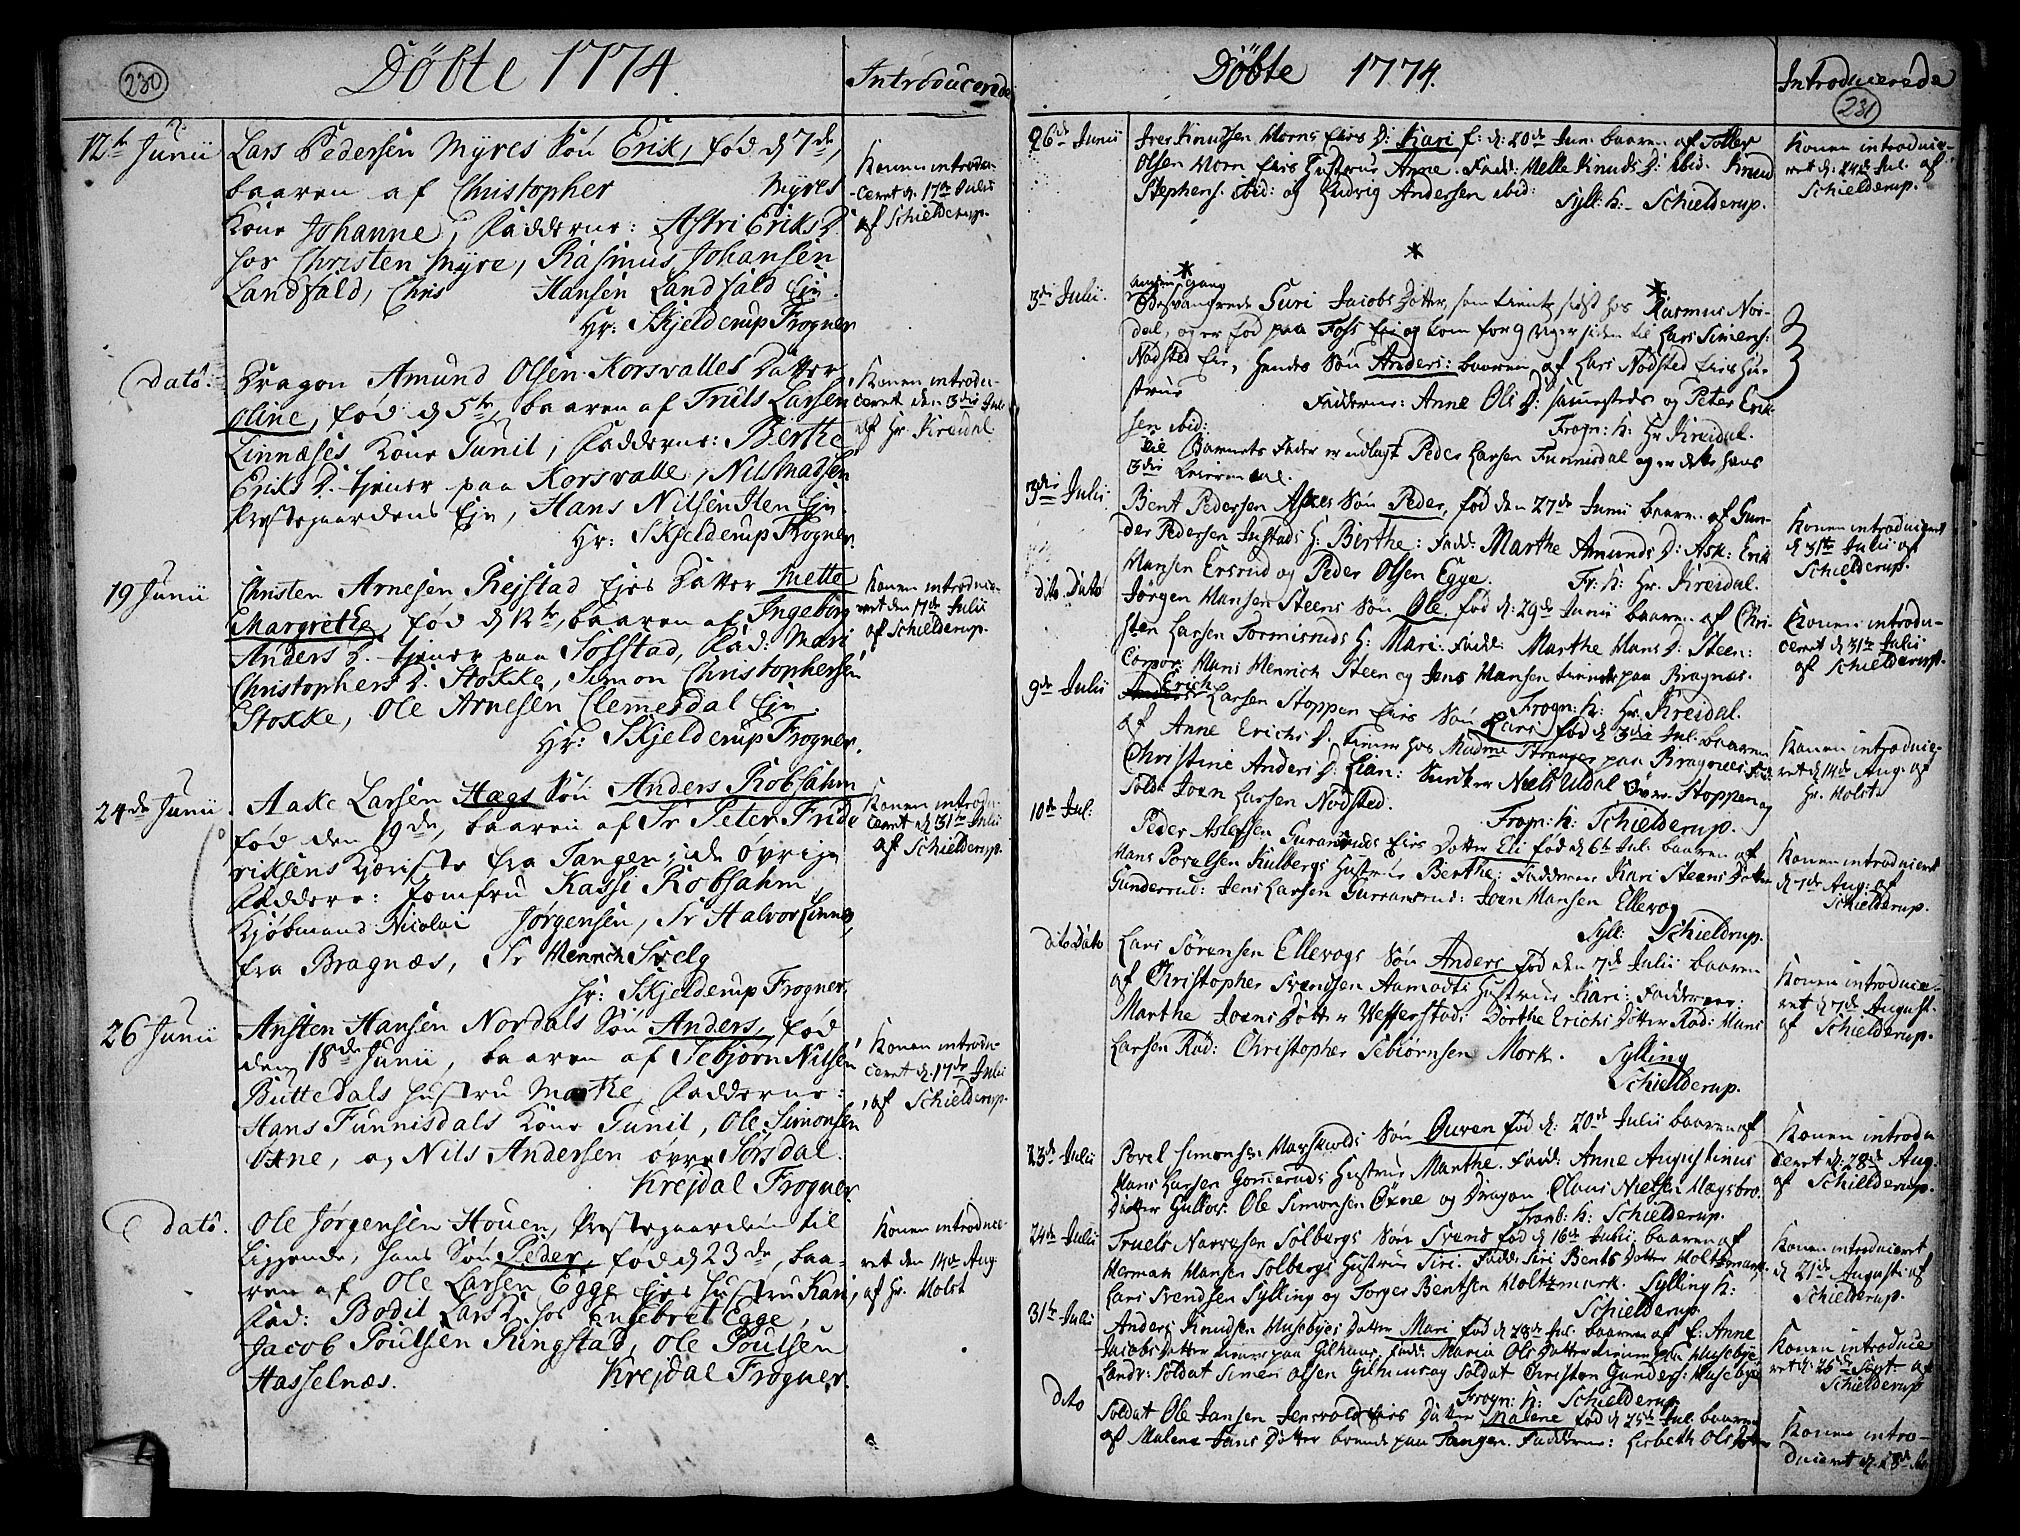 230
Döbte 1774.
Introducerede
12te Junii
Lars Pedersen Myres Sön Erik, föd d 7de,
baaren af Christopher Myres
Kone Johanne, Fadderne: Astri Eriks D.
hos Christen Myre, Rasmus Johansen
Landfald, Chris Hansen Landfald Eje.
Hr: Skjelderup Frogner
Konen introdu-
ceret d. 17de Julii
af Schielderup.
Dato.
Dragon Amund Olsen Korsvalles Datter
Oline, föd d 5te, baaren af Truls Larsen
Linneses Kone Gunil, Fadderne: Berthe
Eriks D. tjener paa Korsvalle, Nils Madsen
Præstegaardens Eje, Hans Nilsen Hen Eje
Hr: Skjelderup Frogner.
Konen introdu-
ceret den 3die Juli
af Hr Kreidal
19 Junii
Christen Arnesen Rejstad Ejes Datter Mette
Margrethe, föd d 12te, baaren af Ingeborg
Anders D. tjener paa Solstad, Fad: Mari
Christophers D. Stokke, Simon Christophersen
Stokke, Ole Arnesen Clemesdal Eje.
Hr: Skjelderup Frogner.
Konen introducie-
ret den 17de Julii
af Schielderup.
24de Junii.
Aake Larsen Hægs Sön Anders Robsahm
föd den 19de, baaren af Sr Peter Fride
riksens Kjæriste fra Tangen; de övrige
Faddere: Jomfru Kasse Robsahm,
Kjöbmand Nicolai Jörgensen, Sr Halvor Linnes,
fra Bragnæs, Sr Henrich Svelg
Hr: Skjelderup Frogner.
Konen introdu-
ceret d. 31te Julii
af Schielderup.
26 Junii
Ansten Hansen Nordals Sön Anders, föd
den 18de Junii, baaren af Sebjörn Nilsen
Buttedals Hustru Marthe, Fadderne:
Hans Funnisdals Kone Gunil, Ole Simonsen
Öxne, og Nils Andersen övre Sörsdal.
Krejdal Frogner.
Konen introdu-
ceret d. 17de Julii
af Schielderup.
Dato.
Ole Jörgensen Houen, Præstegaarden til
liggende, hans Sön Peder, föd d 23de, baa-
ren af Ole Larsen Egge Ejes Hustru Kari,
Fad: Bodil Lars D. hos Engebret Egge,
Jacob Poulsen Ringstad, Ole Poulsen
Hasselnæs. Krejdal Frogner.
Konen introducie-
ret den 14de Aug.
af Hr. Holst
Döbte 1774.
Introducierede
231
26de Junii
Iver Knudsen Horns Eies D: Kari f: d: 20de Jun: baaren af Tollev
Olsen Horn Eies Hustrue Anne. Fadd: Helle Knuds D: ibid. Knud
Stephens: ibid: og Ludvig Andersen ibid: Syll: k: Schielderup.
Konen introducie-
ret d. 24de Jul. af
Schielderup.
3die Julii.
anden gang
Besvangrede Guri Jacobs Dotter, som tiente sidst hos Rasmus Nor-
dal, og er föd paa Foss Eie og kom for 9 uger siden til Lars Simens:
Nödsted Eie, hendes Sön Anders: baaren af Lars Nödsted Eies Hu-
strue Fadderne: Anne Ols D: sammesteds og Peter Erik-
sen ibid: Frogn: k: Hr Kreidal.
Til Barnets Fader er udlagt Peder Larsen Funnisdal og er dette hans
3die Leiermaal.
3die Julii
Bent Pedersen Askes Sön Peder, föd den 27de Junii baaren af Gun-
der Pedersen Justads H: Berthe: Fadd: Marthe Amunds D: Ask: Erik
Hansen Ersrud og Peder Olsen Egge. Fr: k: Hr. Kreidal.
Konen introducieret
d 31te Julii af
Schielderup.
dito Dato
Jörgen Hansen Steens Sön Ole, föd d: 29de Junii baaren af Chri-
sten Larsen Tormisruds H: Mari. Fadd: Marthe Hans D. Steen:
Corpor: Hans Henrich Steen og Jens Hansen tienende paa Bragnæs.
Frogn: k: Hr. Kreidal.
Konen introdu-
ceret d. 31te Julii
af Schielderup.
9de Julii
Erich
Larsen Stoppen Eies Sön Lars föd d 3die Jul: baaren
af Anne Erichs D. tiener hos Madme Stranger paa Bragnæs Fad:
Christine Anders D: Lian: Snedker Niels Udal Över Stoppen og
Sold: Joen Larsen Nödsted. Frogn: k: Schielderup.
Konen introducie-
ret d 14de Aug: af
Hr. Holst.
10de Jul:
Peder Aslefsen Guransruds Eies Datter Eli föd d 6te Jul: baaren af
Hans Povelsen Kulbergs Hustrue Berthe: Fadderne Kari Steens Dotter
Gunderrud: Jens Larsen Gurransrud: Joen Hansen Ellevog
Syll: Schieldrup.
Konen introducieret
d 7de Aug: af
Schielderup.
dito Dato
Lars Sörensen Ellevogs Sön Anders föd den 7de Julii baaren
af Christopher Svendsen Aamodts Hustrue Kari: Fadderne:
Marthe Joens Dotter Vefferstad: Dorthe Erichs Dotter Röd: Hans
Larsen Röd: Christopher Sebiörnsen Mork. Sylling
Schielderup.
Konen introducie-
ret d 7de August.
af Schielderup.
23de Julii
Povel Simonsen Harskolds Sön Ouven föd d: 20de Julii baaren af
Hans Larsen Gommeruds Hustrue Marthe. Fadd: Anne Augustinus
Dotter Gulkos: Ole Simonsen Öxne og Dragon Claus Nielsen Hægsbro.
Tranb: k: Schielderup.
Konen introdu
ceret d: 28de Aug:
af Schielderup.
24de Julii
Truels Narvesen Solbergs Sön Svend föd d 16de Julii baaren af
Herman Hansen Solbergs Hustrue Siri: Fadd: Siri Bents Dotter Holtzmark.
Lars Svendsen Sylling og Torger Bentsen Holtzmark. Sylling k:
Schielderup.
Konen introducieret
d 21de Augusti af
Schielderup.
31te Julii
Anders Knudsen Husebyes Datter Mari föd d 28de Jul. baaren af f: Anne
Jacobs Dotter tiener paa Gilhuus, Fadd: Maria Ols Dotter tiener paa Husebye
Landv: Soldat Simen Olsen Gilhuus og Soldat Christen Gunders: Husebye
Frogn: k: Schielderup
Konen introducie
ret d. 25de Sept. af
Schielderup
dito
Soldat Ole Jansen Jensvold Eies Dotter Malene föd d 25te Jul. baaren
af Malene Jans Dotter boende paa Tangen. Fadderne: Lisbeth Ols Dotter
Konen intro-
ducieret d. 28de